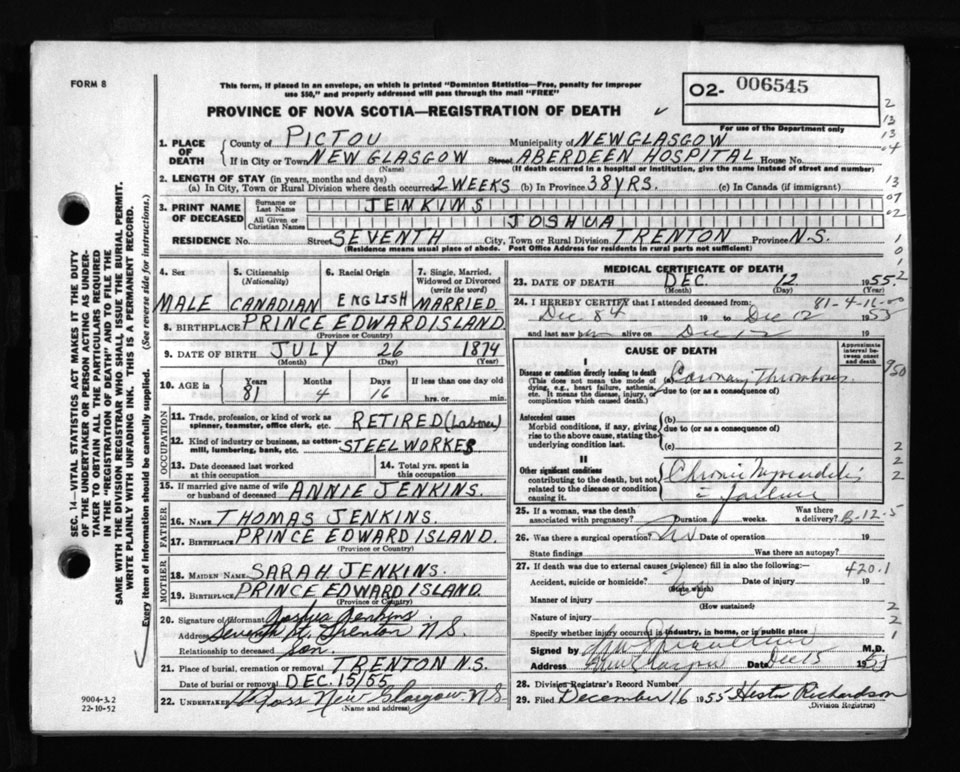 FORM 8
This form, if placed in an envelope, on which is printed "Dominion Statistics—Free, penalty for improper
use $30," and properly addressed will pass through the mail "FREE"
O2- 006545
For use of the Department only
PROVINCE OF NOVA SCOTIA—REGISTRATION OF DEATH
1. PLACE OF DEATH
County of PICTOU Municipality of NEW GLASGOW
If in City or Town NEW GLASGOW Street ABERDEEN HOSPITAL House No.
(Name) (If death occurred in a hospital or institution, give the name instead of street and number)
2. LENGTH OF STAY (in years, months and days)
(a) In City, Town or Rural Division where death occurred 2 WEEKS (b) In Province 38 YRS. (c) In Canada (if immigrant)
3. PRINT NAME OF DECEASED
Surname or Last Name JENKINS
All Given or Christian Names JOSHUA
RESIDENCE No. Street SEVENTH City, Town or Rural Division TRENTON Province N.S.
(Residence means usual place of abode. Post Office Address for residents in rural parts not sufficient)
4. Sex MALE
5. Citizenship (Nationality) CANADIAN
6. Racial Origin ENGLISH
7. Single, Married, Widowed or Divorced (write the word) MARRIED
8. BIRTHPLACE PRINCE EDWARD ISLAND
(Province or Country)
9. DATE OF BIRTH JULY 26 1874
(Month) (Day) (Year)
10. AGE in Years 81 Months 4 Days 16 If less than one day old
hrs. or min.
OCCUPATION
11. Trade, profession, or kind of work as spinner, teamster, office clerk, etc. RETIRED (Laborer)
12. Kind of industry or business, as cotton-mill, lumbering, bank, etc. STEELWORKER
13. Date deceased last worked at this occupation
14. Total yrs. spent in this occupation
15. If married give name of wife or husband of deceased ANNIE JENKINS.
FATHER
16. NAME THOMAS JENKINS.
17. BIRTHPLACE PRINCE EDWARD ISLAND.
(Province or Country)
MOTHER
18. MAIDEN NAME SARAH JENKINS.
19. BIRTHPLACE PRINCE EDWARD ISLAND.
(Province or Country)
20. Signature of Informant Joshua Jenkins
Address Seventh St. Trenton N.S.
Relationship to deceased Son.
21. Place of burial, cremation or removal TRENTON N.S.
Date of burial or removal DEC. 15/55.
22. UNDERTAKER Ross New Glasgow N.S.
(Name and address)
MEDICAL CERTIFICATE OF DEATH
23. DATE OF DEATH DEC. 12 1955
(Month) (Day)
24. I HEREBY CERTIFY that I attended deceased from: 81-4-16-00
Dec 8th 19 to Dec 12 1955
and last saw him alive on Dec 12
CAUSE OF DEATH
Approximate interval between onset and death
I
Disease or condition directly leading to death
(This does not mean the mode of dying, e.g., heart failure, asthenia, etc. It means the disease, injury, or complication which caused death.)
(a) Coronary Thrombosis
due to (or as a consequence of)
Antecedent causes
Morbid conditions, if any, giving rise to the above cause, stating the underlying condition last.
(b)
due to (or as a consequence of)
(c)
II
Other significant conditions
contributing to the death, but not related to the disease or condition causing it.
Chronic Myocarditis
c failure
25. If a woman, was the death associated with pregnancy? Duration weeks. Was there a delivery? B-12-5
26. Was there a surgical operation? No Date of operation 19
State findings Was there an autopsy?
27. If death was due to external causes (violence) fill in also the following:— 420.1
Accident, suicide or homicide? Date of injury 19
(State which)
Manner of injury
(How sustained)
Nature of injury
Specify whether injury occurred in industry, in home, or in public place
Signed by M.D.
Address New Glasgow Date Dec 15 1955
28. Division Registrar's Record Number
29. Filed December 16 1955 Hester Richardson
(Division Registrar)
9004-3.2
22-10-52
SEC. 14—VITAL STATISTICS ACT MAKES IT THE DUTY
OF THE UNDERTAKER OR PERSON ACTING AS UNDER-
TAKER TO OBTAIN ALL THE PARTICULARS REQUIRED
IN THE "REGISTRATION OF DEATH" AND TO FILE THE
SAME WITH THE DIVISION REGISTRAR WHO SHALL ISSUE THE BURIAL PERMIT.
WRITE PLAINLY WITH UNFADING INK. THIS IS A PERMANENT RECORD.
Every item of information should be carefully supplied. (See reverse side for instructions.)